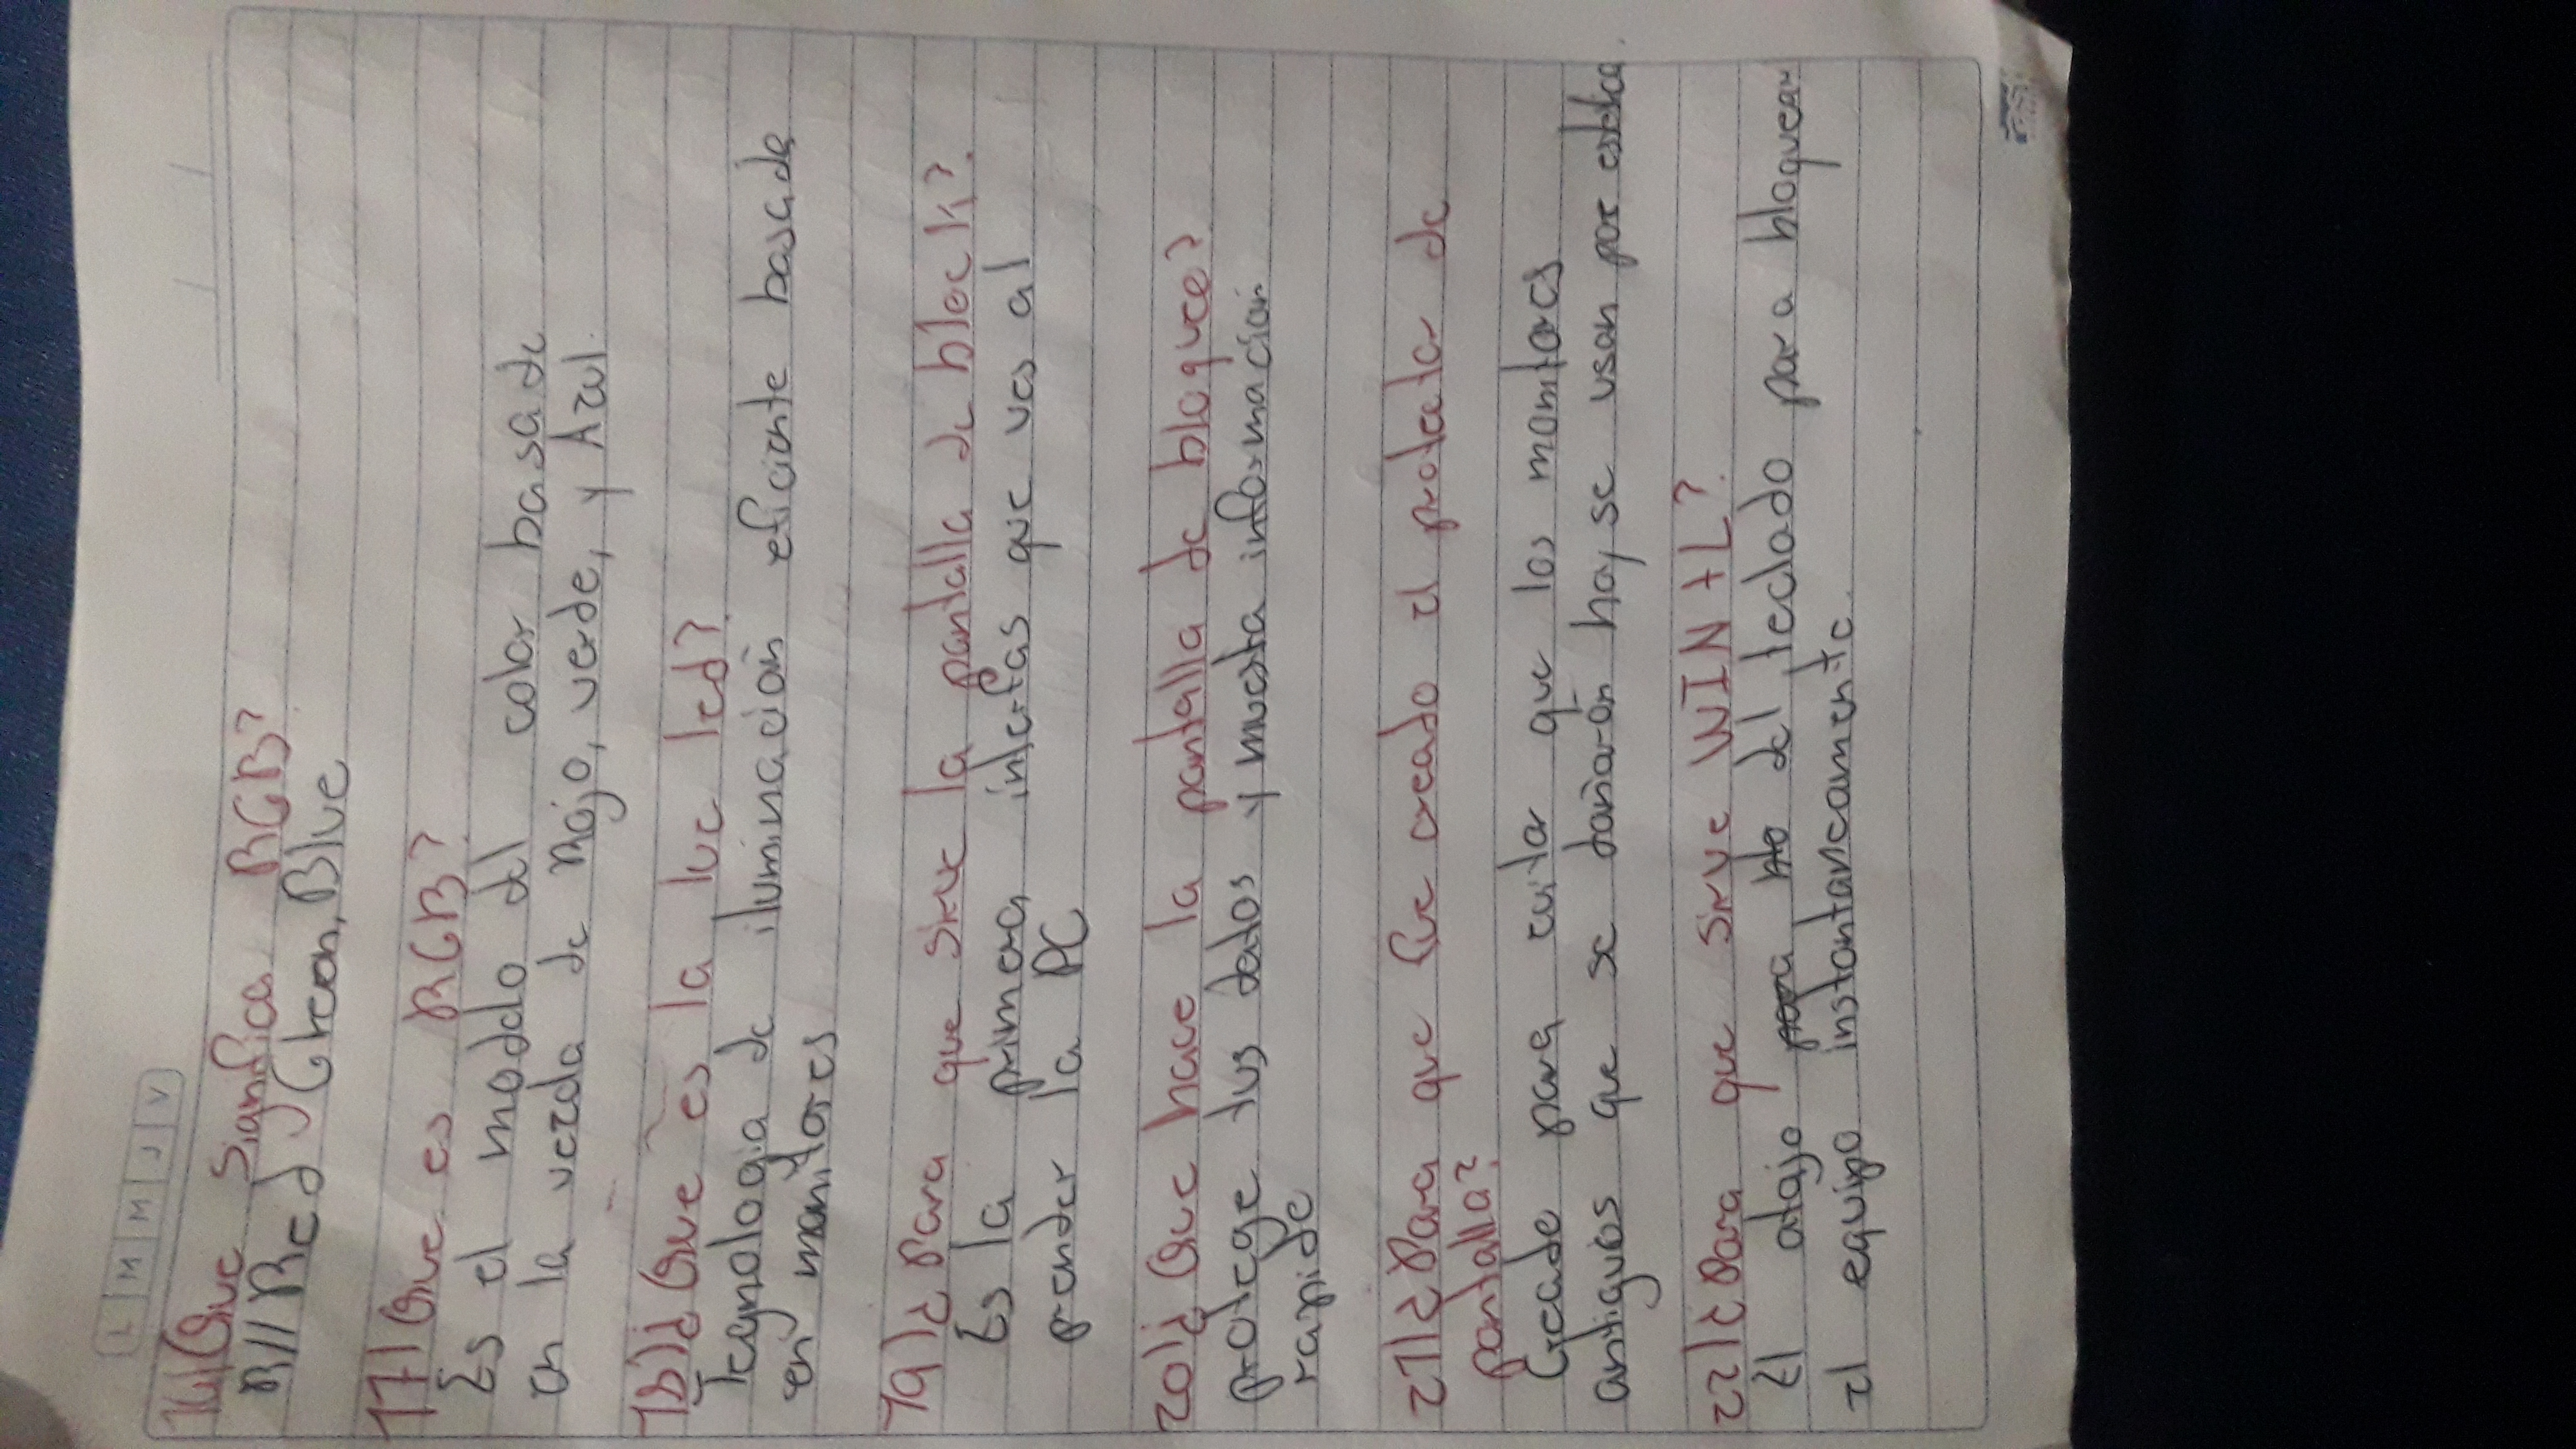 L M M J V
16/Que Significa RGB?
R// Red, Green, Blue
17/Que es RGB?
Es el modelo del color basade
en la vezcla de Rojo, verde, y Azul.
18/¿Que es la luc led?
Tecgnologia de iluminación eficiente basade
en monitores
19/¿Para que sirve la pantalla de block?
Es la primera interfas que ves al
prender la PC
20/¿Que hace la pantalla de bloquee?
protege tus datos y muestra informacion
rapide
21/¿Para que fue creado el protetor de
pantalla?
Creade para evitar que los monitores
antiguos que se dañarón hoy se usan por estetica
22/¿Para que sirve WIN+L?
El atajo del teclado para bloquear
el equipo instantaneamente.